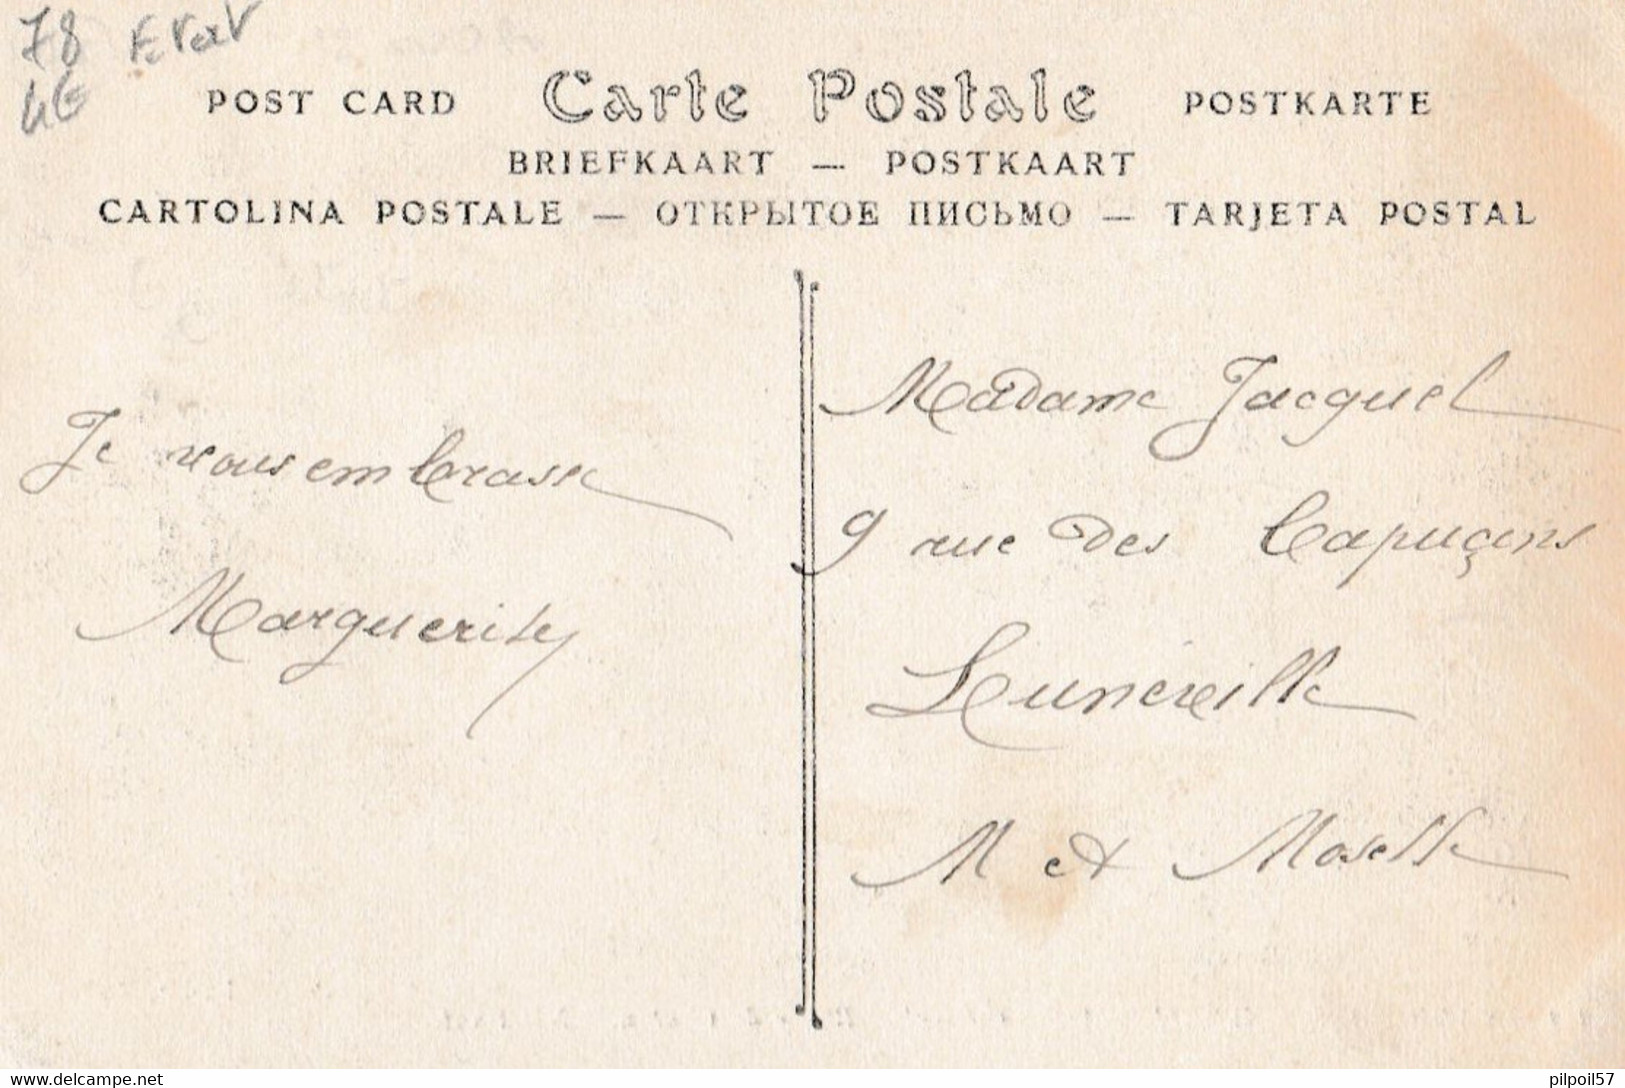 78 Etat
4€
POST CARD Carte Postale POSTKARTE
BRIEFKAART — POSTKAART
CARTOLINA POSTALE — ОТКРЫТОЕ ПИСЬМО — TARJETA POSTAL
Je vous embrasse
Marguerite
Madame Jacquel
9 rue des Capuçins
Lunéville
M et Moselle
delcampe.net
pilpoil57